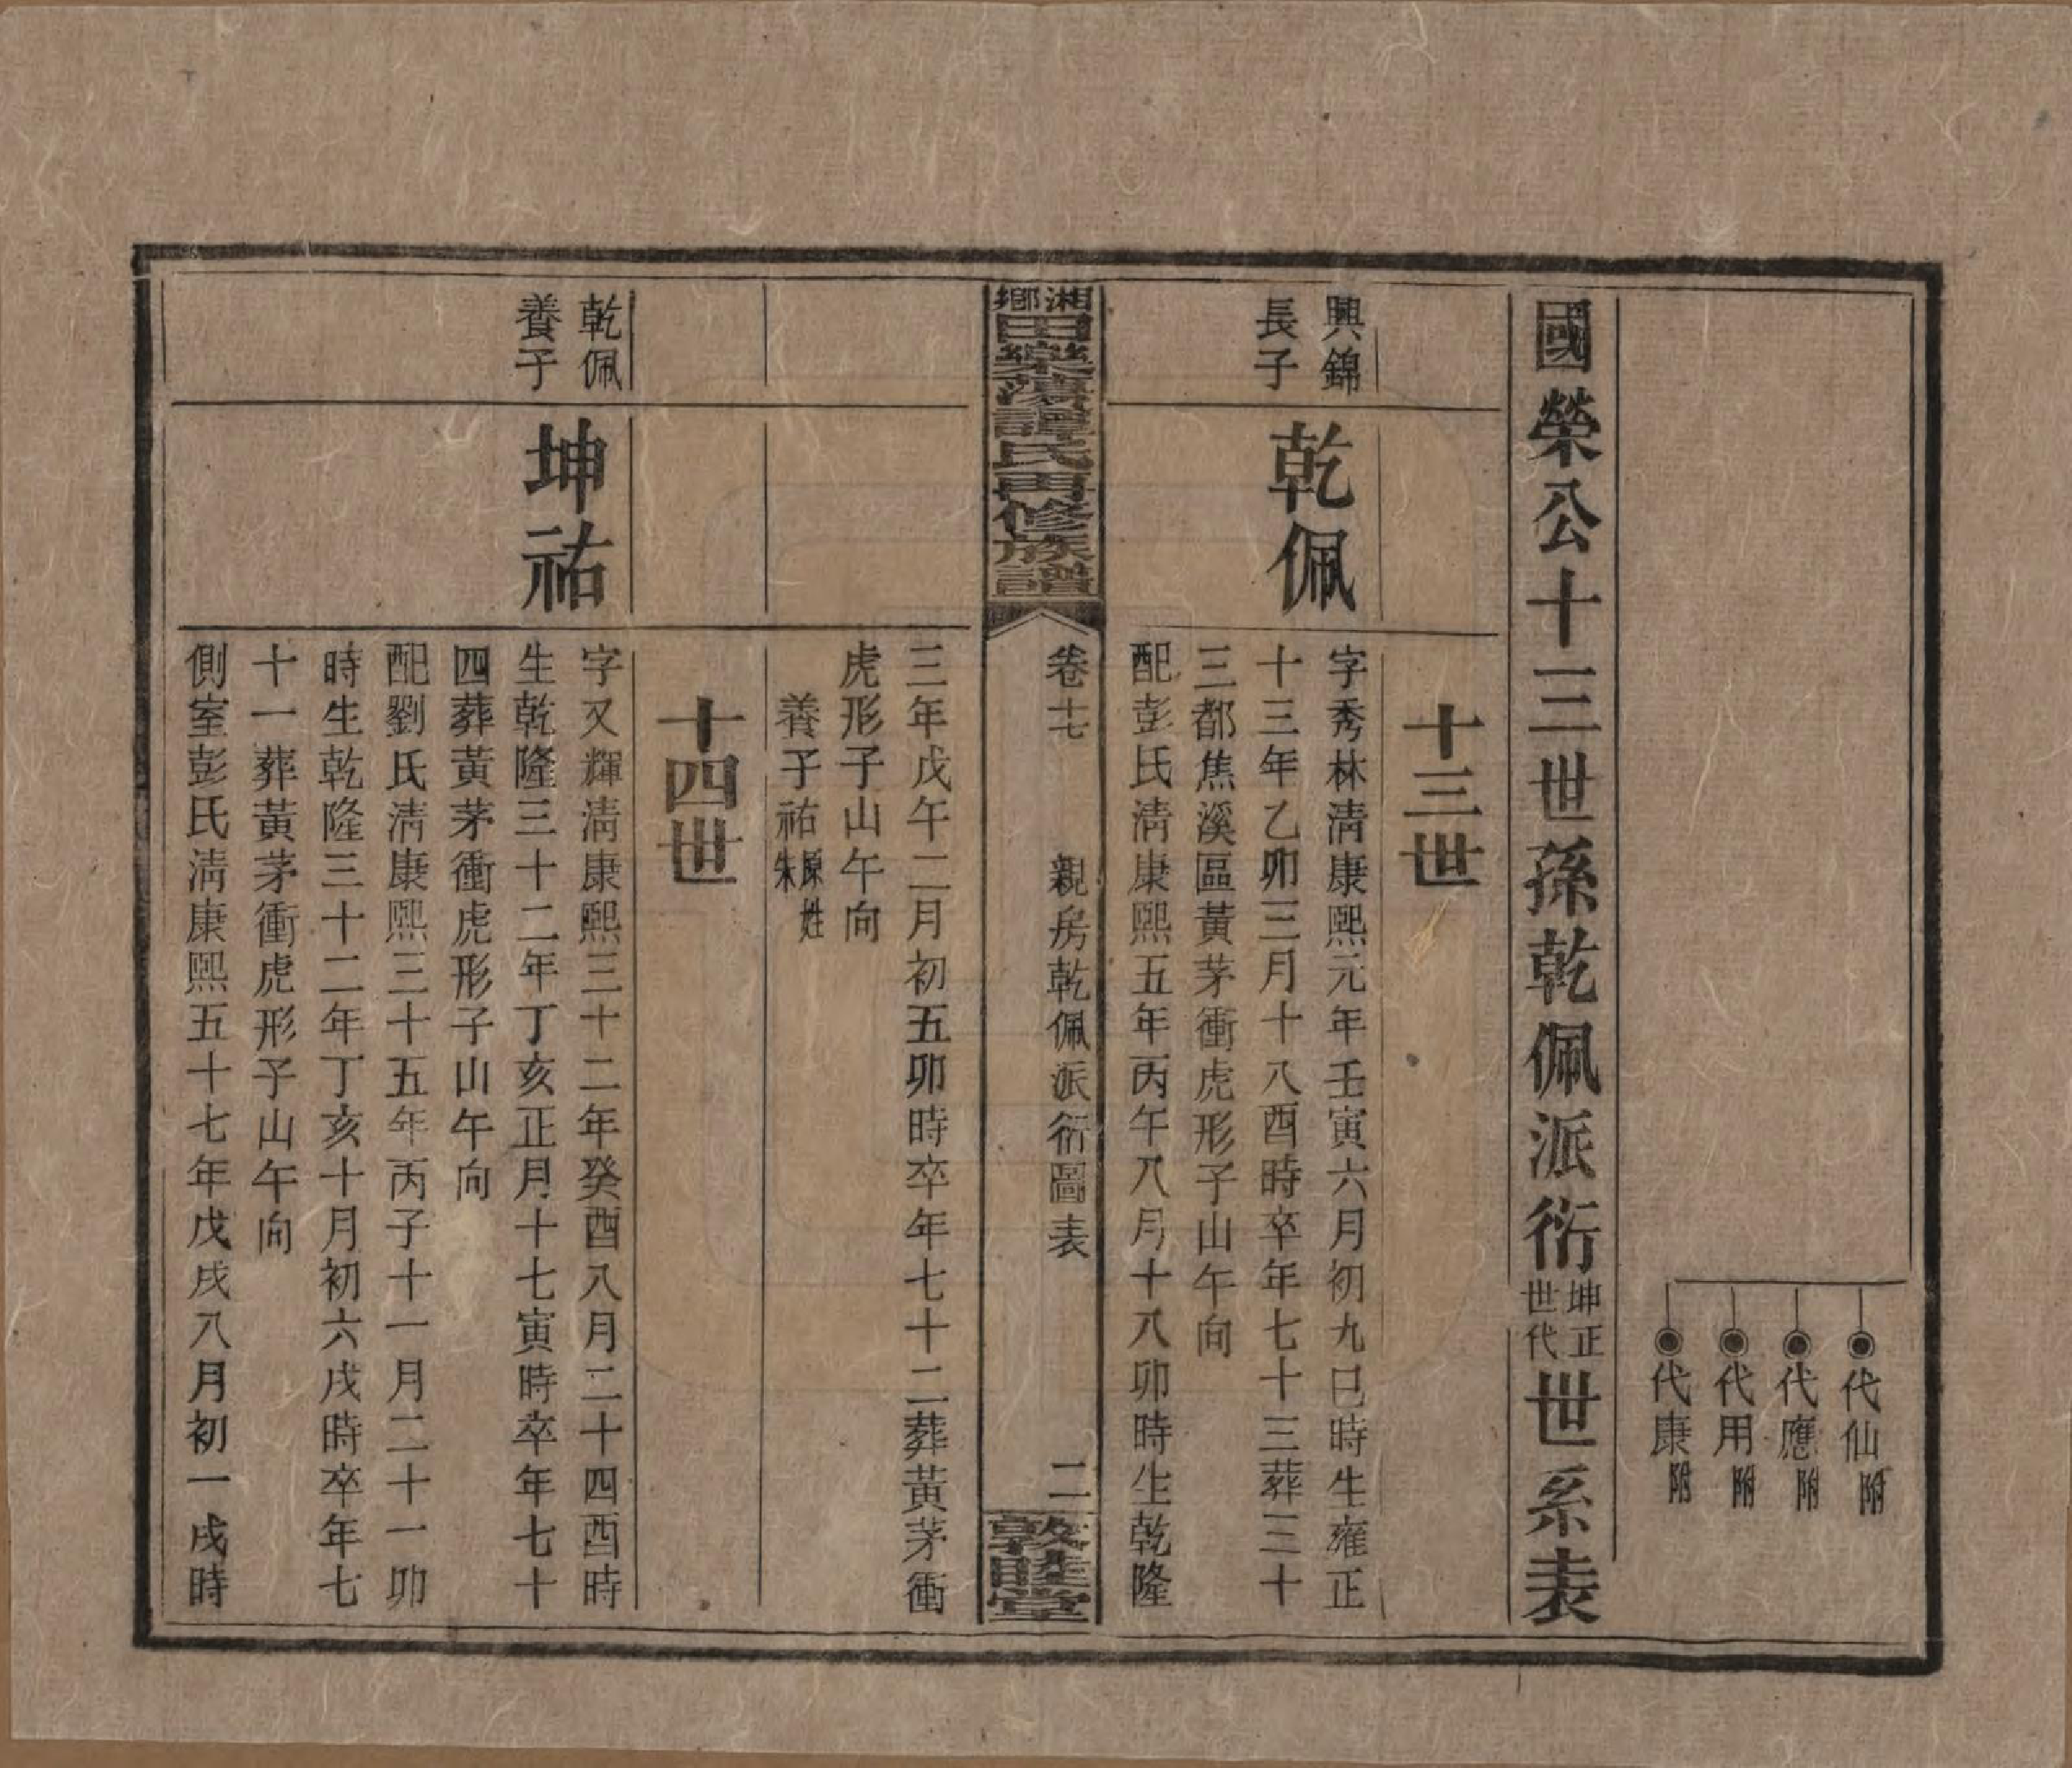 代仙附
代應附
代用附
代康附
國榮公十三世孫乾佩派衍坤正世代世系表
十三世
興錦
長子
乾佩
字秀林淸康熙元年壬寅六月初九巳時生雍正
十三年乙卯三月十八酉時卒年七十三葬三十
三都焦溪區黃茅衝虎形子山午向
配彭氏淸康熙五年丙午八月十八卯時生乾隆
湘鄉田樂灣譚氏再修族譜
卷十七
親房乾佩派衍圖表
二
敦睦堂
三年戊午二月初五卯時卒年七十二葬黃茅衝
虎形子山午向
養子祐原姓朱
十四世
乾佩
養子
坤祐
字又輝淸康熙三十二年癸酉八月二十四酉時
生乾隆三十二年丁亥正月十七寅時卒年七十
四葬黃茅衝虎形子山午向
配劉氏淸康熙三十五年丙子十一月二十一卯
時生乾隆三十二年丁亥十月初六戌時卒年七
十一葬黃茅衝虎形子山午向
側室彭氏淸康熙五十七年戊戌八月初一戌時